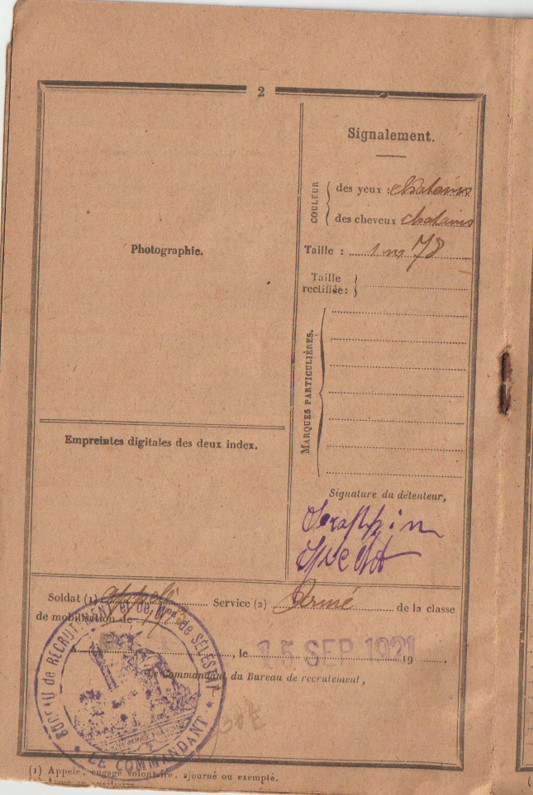 2
Signalement.
COULEUR
des yeux : chatains
des cheveux chatains
Taille : 1 m 78
Taille
rectifiée :
MARQUES PARTICULIÈRES.
Photographie.
Empreintes digitales des deux index.
Signature du détenteur,
Séraphin
Soldat (1) appelé Service (2) Armé de la classe
de mobilisation de
A , le 15 SEP 1921 19 .
Commandant du Bureau de recrutement,
BUREAU de RECRUTEMENT et de Mre de SÉLESTAT
* LE COMMANDANT *
(1) Appelé, engagé volontaire, ajourné ou exempté.